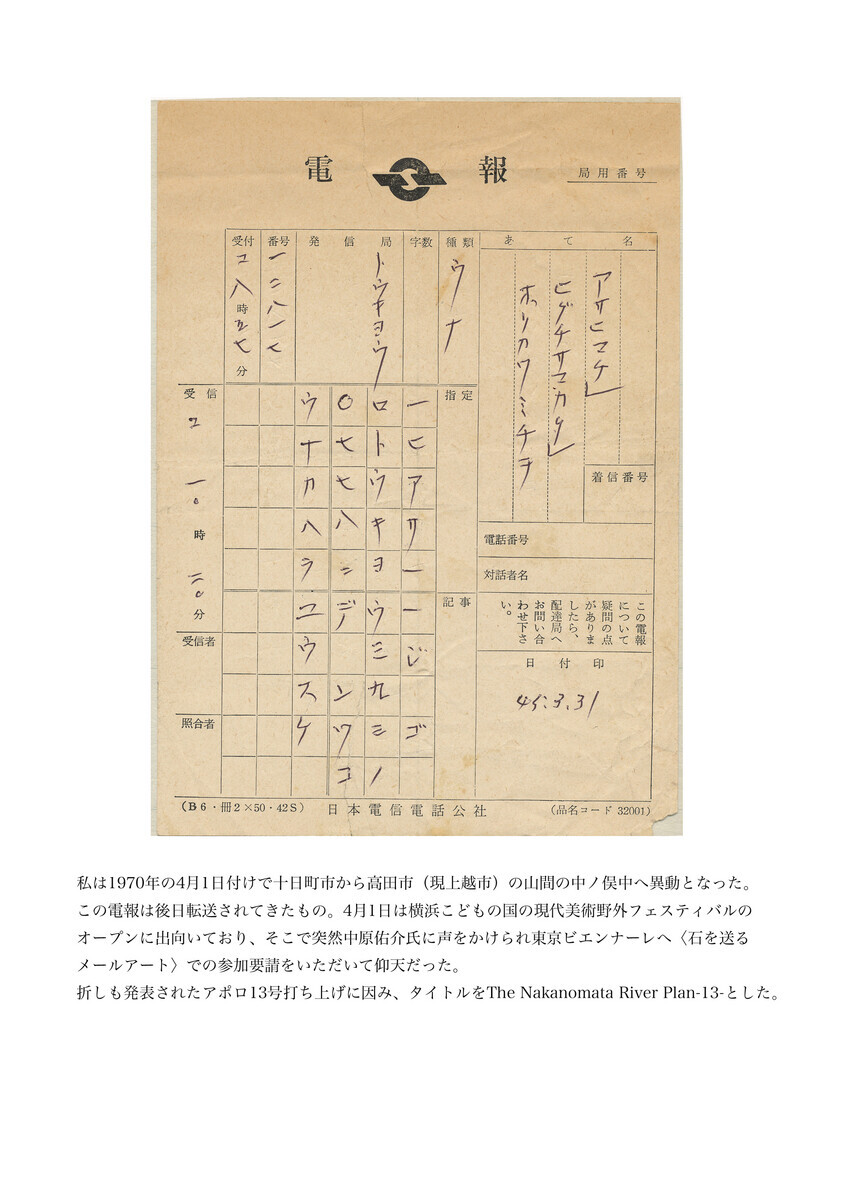 電報
局用番号
あて名
アサヒマチ」
ヒグチサマカタ」
ホリカワミチヲ
着信番号
電話番号
対話者名
この電報
について
疑問の点
がありま
したら、
配達局へ
お問い合
わせ下さ
い。
日付印
45.3.31
種類
ウナ
字数
発信局
トウキヨウ
番号
一二八一七
受付
コ八時五七分
指定
記事
一ヒアサ一一ジ ゴ
ロトウキヨウ三九三ノ
〇七七八二デ ンワコ
ウナカハラユウスケ
受信
コ 一〇時 二〇分
受信者
照合者
(B6・冊2×50・42S) 日本電信電話公社 (品名コード 32001)
私は1970年の4月1日付けで十日町市から高田市（現上越市）の山間の中ノ俣中へ異動となった。
この電報は後日転送されてきたもの。4月1日は横浜こどもの国の現代美術野外フェスティバルの
オープンに出向いており、そこで突然中原佑介氏に声をかけられ東京ビエンナーレへ〈石を送る
メールアート〉での参加要請をいただいて仰天だった。
折しも発表されたアポロ13号打ち上げに因み、タイトルをThe Nakanomata River Plan-13-とした。